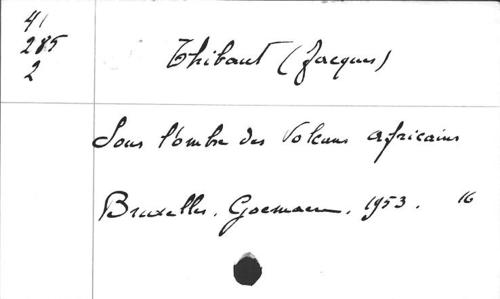 41
285
2
Thibaut (Jacques)
Sous l'ombre des Volcans africains
Bruxelles. Goemaere. 1953. 16